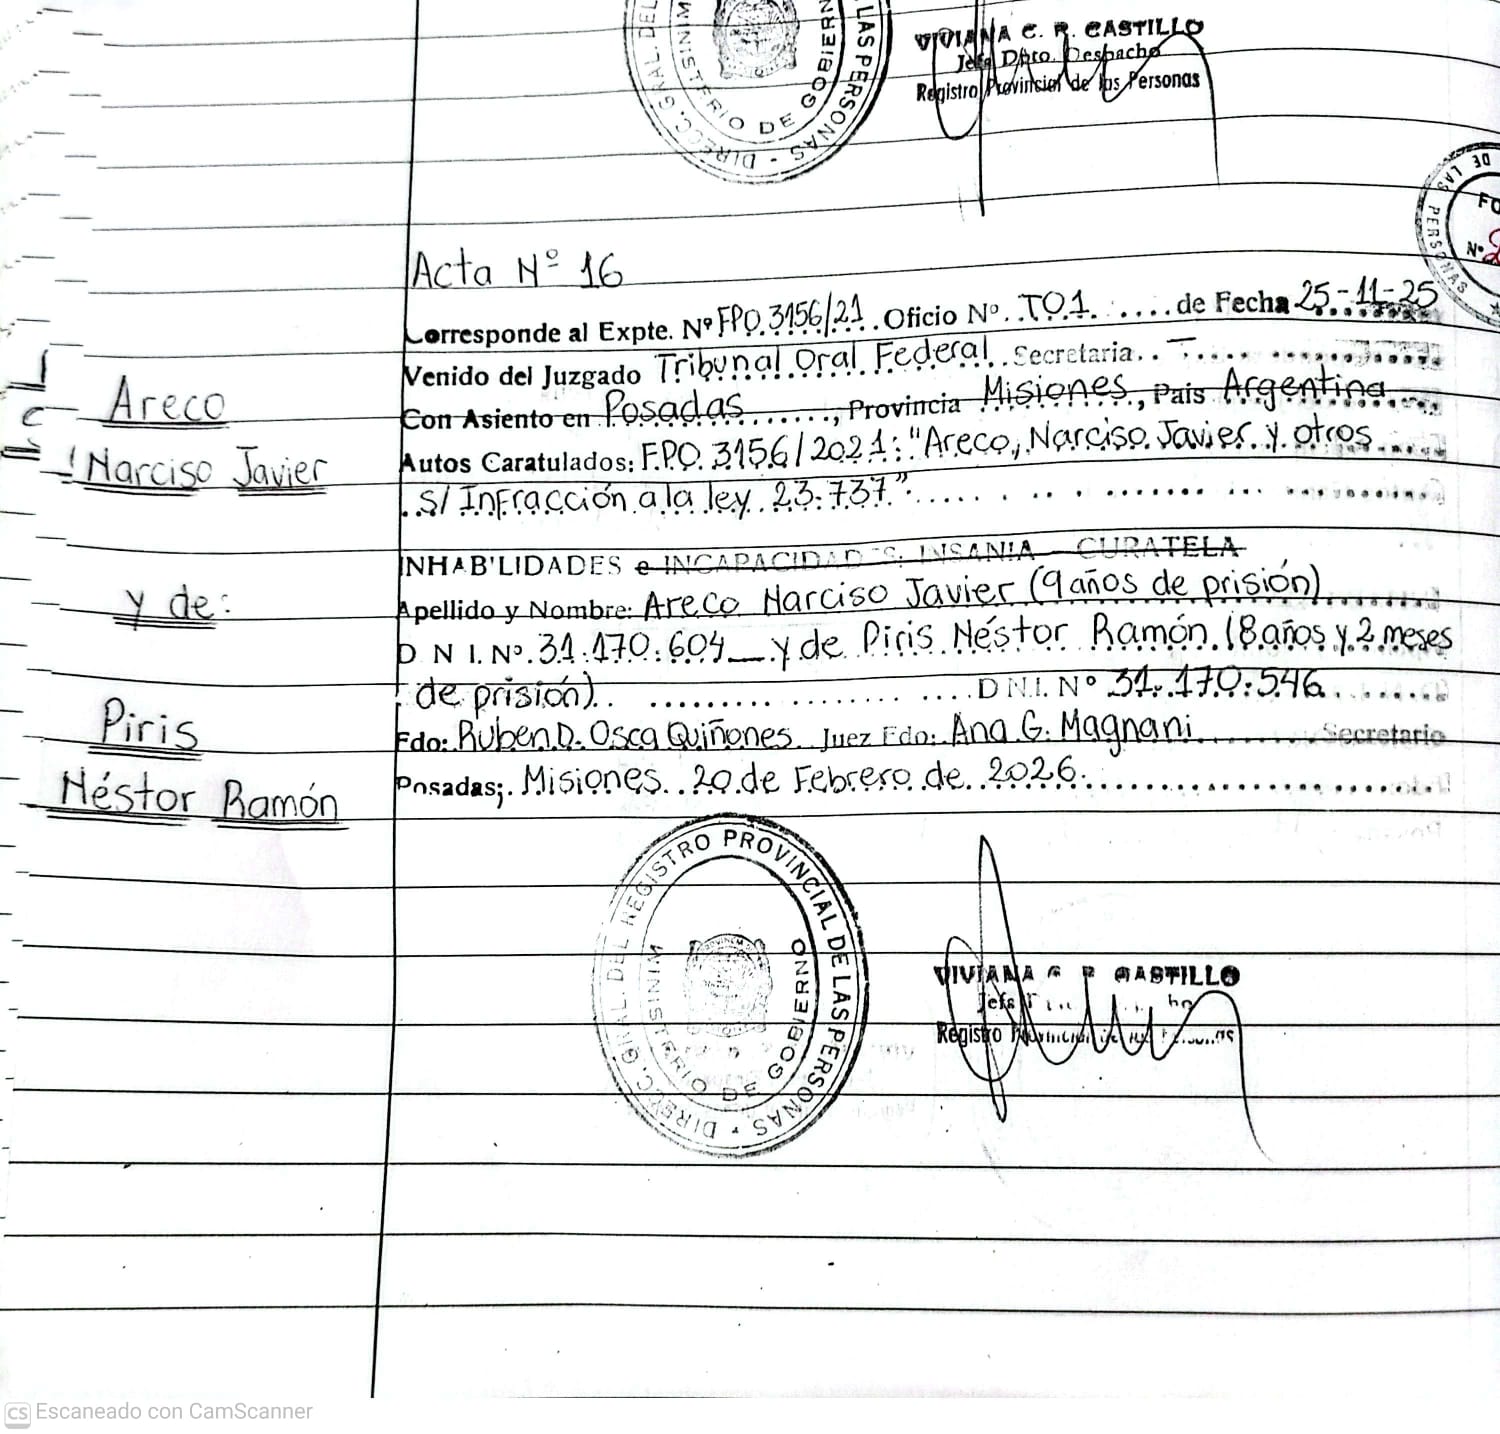 VIVIANA C. R. CASTILLO
Jefa Dpto. Despacho
Registro Provincial de las Personas
LAS PERSONAS - DIRECC. GRAL. DEL
MINISTERIO DE GOBIERN
DE LAS PERSONAS
FO
Nº
Acta Nº 16
Corresponde al Expte. Nº FPO. 3156/21. Oficio Nº. TO1. .... de Fecha 25-11-25
Venido del Juzgado Tribunal Oral Federal. Secretaria. . - . . . .
Con Asiento en Posadas ......., Provincia Misiones, País Argentina
Autos Caratulados: F.P.O. 3156/2021: "Areco, Narciso Javier y otros
S/ Infracción a la ley 23.737".
INHAB'LIDADES e INCAPACIDADES, INSANIA - CURATELA
Apellido y Nombre: Areco Narciso Javier (9 años de prisión)
D N I. Nº. 31.170.604 — y de Piris Néstor Ramón (8 años y 2 meses
de prisión). .......... D N.I. Nº 31.170.546.
Fdo: Ruben D. Osca Quiñones Juez Fdo: Ana G. Magnani ..... Secretario
Posadas; Misiones. 20 de Febrero de 2026.
Areco
Narciso Javier
y de:
Piris
Néstor Ramón
DIRECC. GRAL. DEL REGISTRO PROVINCIAL DE LAS PERSONAS
MINISTERIO DE GOBIERNO
VIVIANA C. R. CASTILLO
Jefa
Registro Provincial de las Personas
CS Escaneado con CamScanner